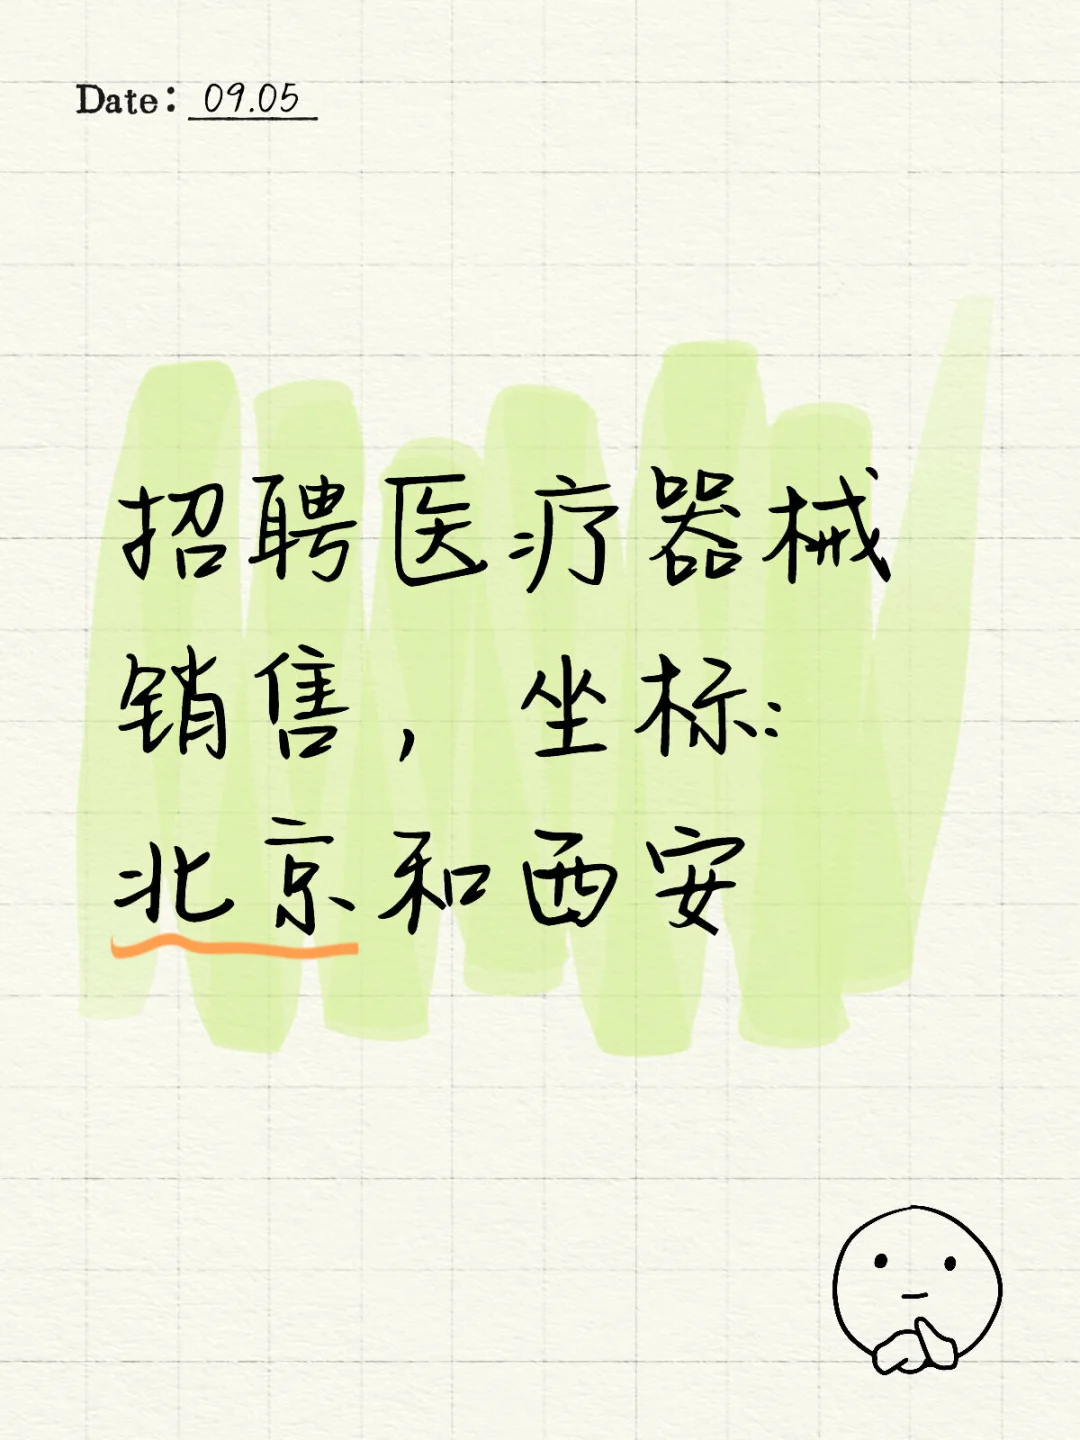 Date: 09.05
招聘医疗器械
销售，坐标:
北京和西安